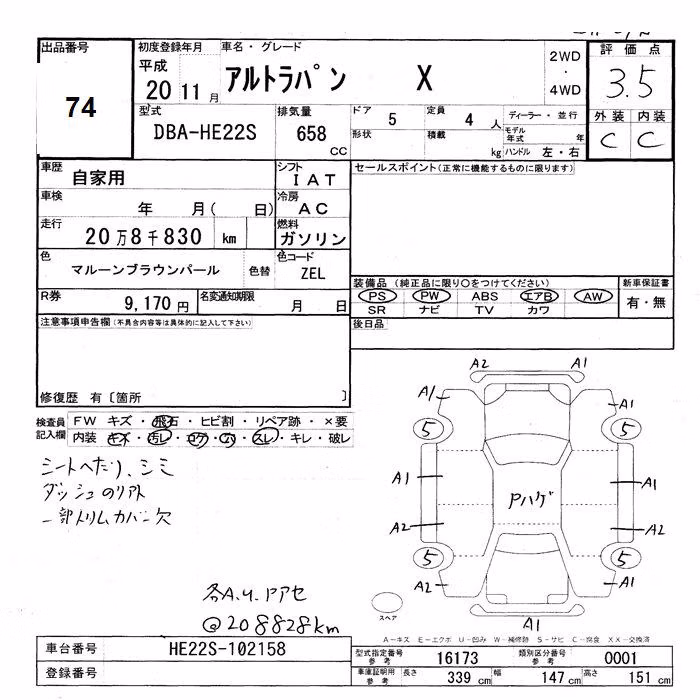 出品番号
74
初度登録年月
平成
20 11 月
車名・グレード
アルトラパン X
2WD
・
4WD
評価点
3.5
型式
DBA-HE22S
排気量
658
CC
ドア 5
形状
定員 4 人
積載 kg
ディーラー・並行
モデル年式 年
ハンドル 左・右
外装 内装
C C
車歴
自家用
シフト
IAT
セールスポイント(正常に機能するものに限ります)
車検
年 月( 日)
冷房
AC
走行
20万8千830 km
燃料
ガソリン
色
マルーンブラウンパール
色替
色コード
ZEL
装備品 (純正品に限り○をつけてください)
PS PW ABS エアB AW
SR ナビ TV カワ
新車保証書
有・無
R券
9,170円
名変通知期限
月 日
後日品
注意事項申告欄(不具合内容等は具体的に記入して下さい)
修復歴 有〔箇所 〕
検査員記入欄
FW キズ・飛石・ヒビ割・リペア跡・×要
内装 キズ・汚レ・コゲ・穴・スレ・キレ・破レ
シートヘたり、シミ
ダッシュのリアト
一部トリムカバー欠
各A.U.Pアセ
@208828km
A2 A1
A1 A1
5 5
A1 A1
Pハゲ
A2 A2
5 5
A2 A1
A1
スペア
A-キズ E-エクボ U-凹み W-補修跡 S-サビ C-腐食 XX-交換済
車台番号
HE22S-102158
登録番号
型式指定番号
参考
16173
類別区分番号
参考
0001
車庫証明用
参考
長さ 339 cm
幅 147 cm
高さ 151 cm